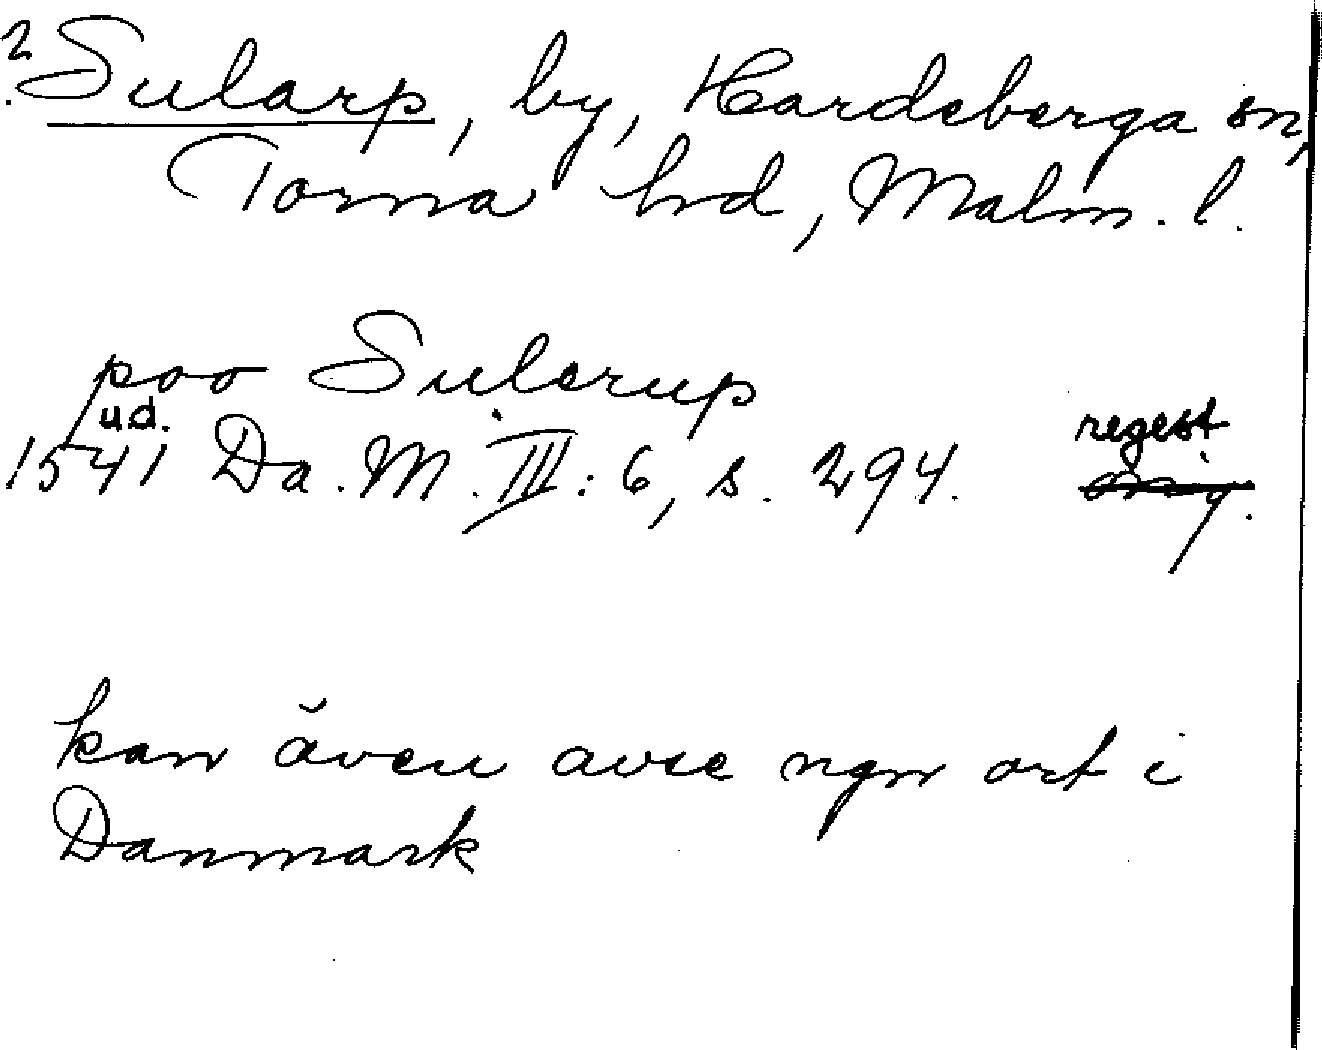 ? Sularp, by, Hardeberga sn,
Torna hd, Malm. l.
poo Sulerup
u.d.
1541 Da. M. III: 6, s. 294. regest
orig.
kan även avse ngn ort i
Danmark